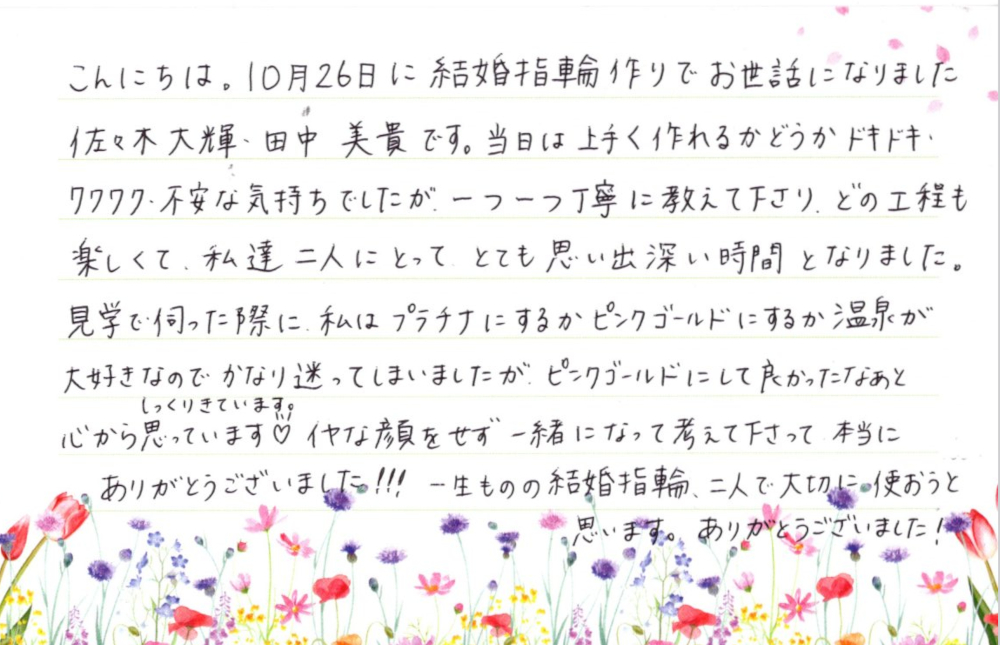 こんにちは。10月26日に結婚指輪作りでお世話になりました
佐々木大輝・田中 美貴です。当日は上手く作れるかどうかドキドキ・
ワクワク・不安な気持ちでしたが、一つ一つ丁寧に教えて下さり、どの工程も
楽しくて、私達二人にとって、とても思い出深い時間となりました。
見学で伺った際に、私はプラチナにするかピンクゴールドにするか温泉が
大好きなのでかなり迷ってしまいましたが、ピンクゴールドにして良かったなあと
しっくりきています。
心から思っています♡ イヤな顔をせず一緒になって考えて下さって、本当に
ありがとうございました!!! 一生ものの結婚指輪、二人で大切に使おうと
思います。ありがとうございました!